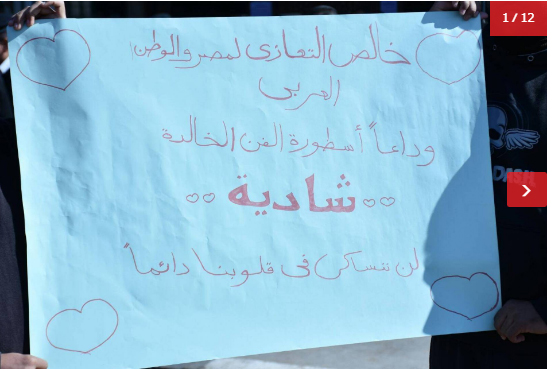 1 / 12
خالص التعازى لمصر والوطن
العربى
وداعاً أسطورة الفن الخالدة
شادية
لن ننساكى فى قلوبنا دائماً
DASH